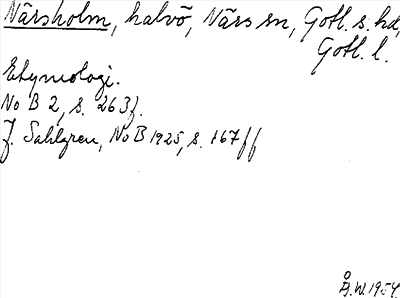 Närsholm, halvö, Närs sn, Gotl. s. hd,
Gotl. l.
Etymologi.
No B 2, s. 263f.
J. Sahlgren, No B 1925, s. 167 ff
Å. W. 1954.